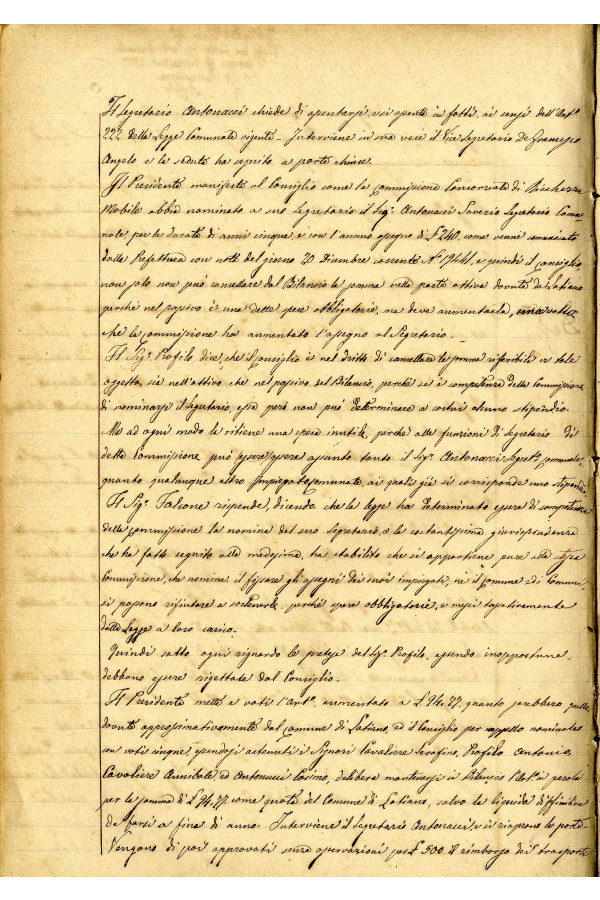 Il Segretario Antonacci chiede di assentarsi, e si assenta in fatti, ai sensi dell'Art.º
222 della Legge Comunale vigente – Interviene in sua vece il Vice Segretario De
Angelo e la seduta ha seguito a porte chiuse.
Il Presidente manifesta al Consiglio come la Commissione Consorziale di Ricchezza
Mobile abbia nominato a suo Segretario il Sig.r Antonacci Saverio Segretario Comu
nale, per la durata di anni cinque, e con l'annuo assegno di £ 240, come venne comunicato
dalla Prefettura con nota del giorno 20 Dicembre corrente Nº 19441, e quindi il Consiglio,
non solo non può cancellare dal Bilancio la somma nella parte attiva dovuta da Latiano
perché nel passivo è una delle spese obbligatorie, ma deve aumentarla, una volta
che la Commissione ha aumentato l'assegno al Segretario. –
Il Sig.r Profilo dice, che il Consiglio è nel dritto di cancellare le somme riferibili a tale
oggetto, sia nell'attivo che nel passivo del Bilancio, perché se è competenza della Commissione
di nominarsi il Segretario, essa però non può determinare a costui alcuno stipendio.
Ma ad ogni modo la ritiene una spesa inutile, perché alle funzioni di Segretario di
detta Commissione può essere assunto tanto il Sig.r Antonacci Segret.º Comunale,
quanto qualunque altro Impiegato Comunale, ai quali già si corrisponde uno stipendio
Il Sig.r Falcone risponde, dicendo, che la legge ha determinato essere di competenza
della Commissione la nomina del suo Segretario, e la costantissima giurisprudenza
che ha fatto seguito alla medesima, ha stabilito che si appartiene pure alla stessa
Commissione, che nomina, il fissare gli assegni dei suoi impiegati, né il Comune ed i Comuni
si possono rifiutare a sostenerle, perché spese obbligatorie, e messe tassativamente
dalla Legge a loro carico.
Quindi sotto ogni riguardo le pretese del Sig.r Profilo, essendo inopportune,
debbono essere rigettate dal Consiglio.
Il Presidente mette a voti l'Art.º aumentato a £ 94.77, quanto sarebbe quella
dovuta approssimativamente dal Comune di Latiano, ed il Consiglio per appello nominale
con voti cinque, essendosi astenuti i Signori Cavaliere Serafino, Profilo Antonio,
Cavaliere Annibale, ed Antonucci Cosimo, delibera mantenersi in Bilancio l'Art.º in parola
per la somma di £ 94.77 come quota del Comune di Latiano, salvo la liquida diffinitiva
da farsi a fine di anno. Interviene il Segretario Antonacci, e si riaprono le porte
Vengono di poi approvati senza osservazioni per £ 500 il rimborso dei trasporti